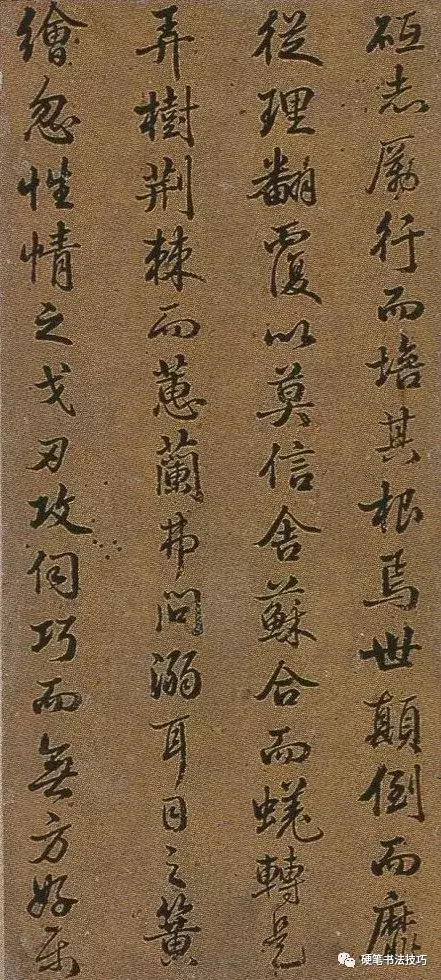 砥志勵行而培其根焉世顛倒而靡
從理翻覆以莫信舍蘇合而蜣轉是
弄樹荊棘而蕙蘭弗問溺耳目之簧
繪忽性情之戈刃攻伺巧而無方好樂
硬笔书法技巧